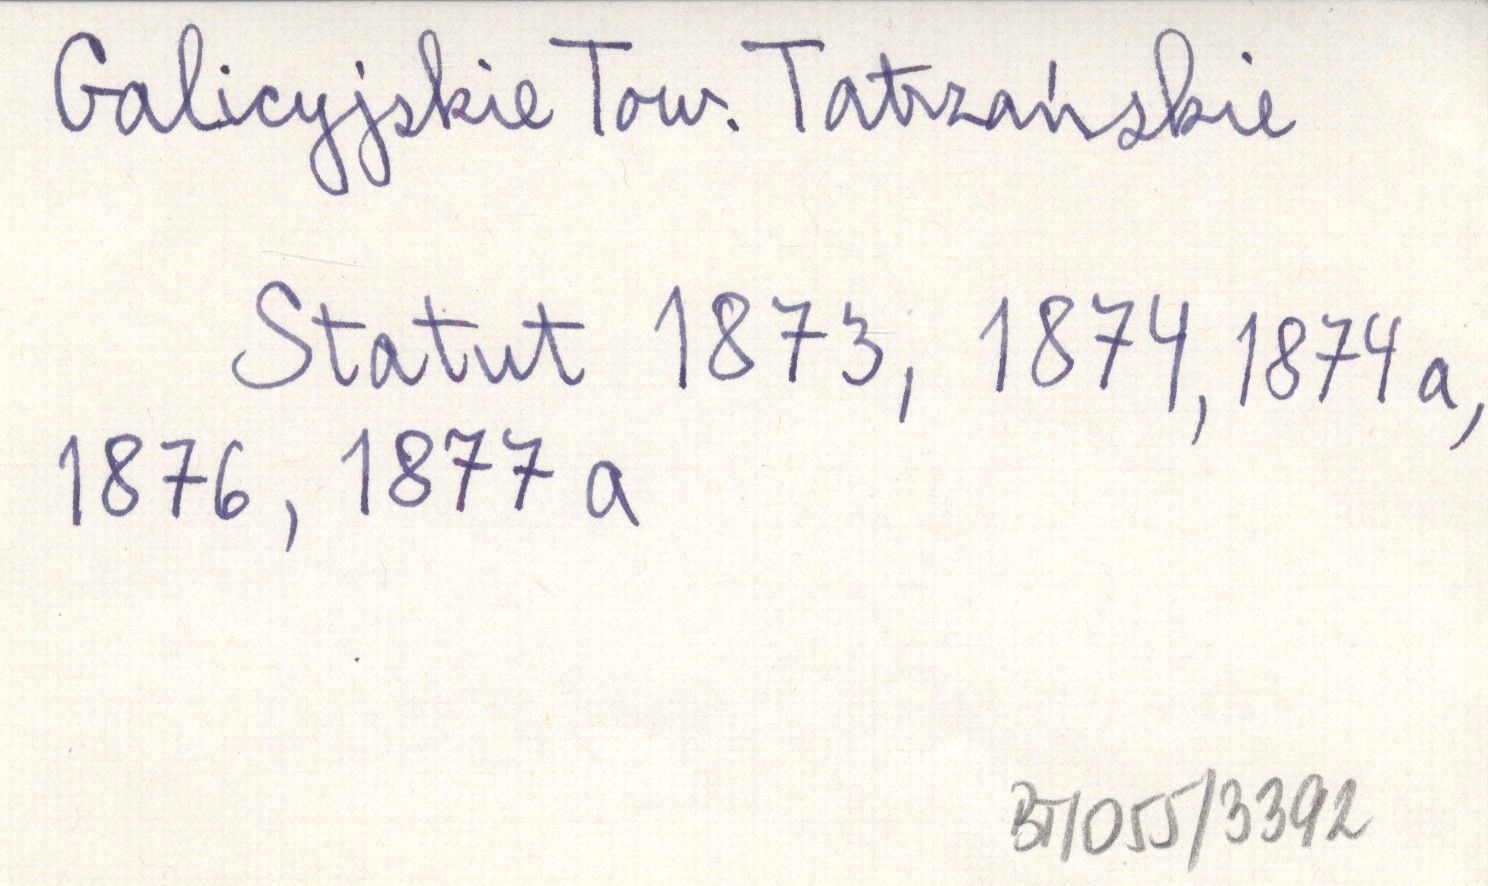 Galicyjskie Tow. Tatrzańskie
Statut 1873, 1874, 1874 a,
1876, 1877 a
BT/055/3392